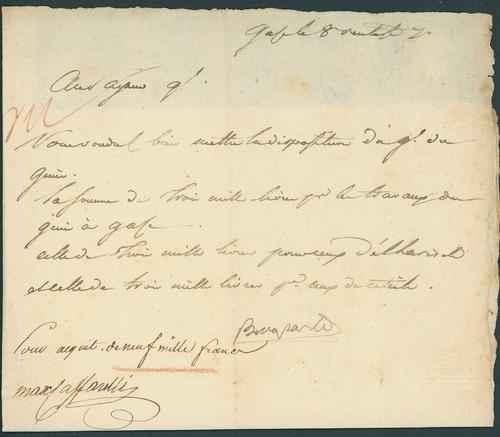 Gaza le 8 ventôse 7.
Au payeur gl.
Vous voudrez bien mettre à la disposition du gl. du
génie.
la somme de trois mille livres pr. les travaux du
génie à gaza
celle de trois mille livres pour ceux d'élharich
et celle de trois mille livres pr. ceux de catieh.
Bonaparte
Pour acquit de neuf mille francs
max Caffarelli